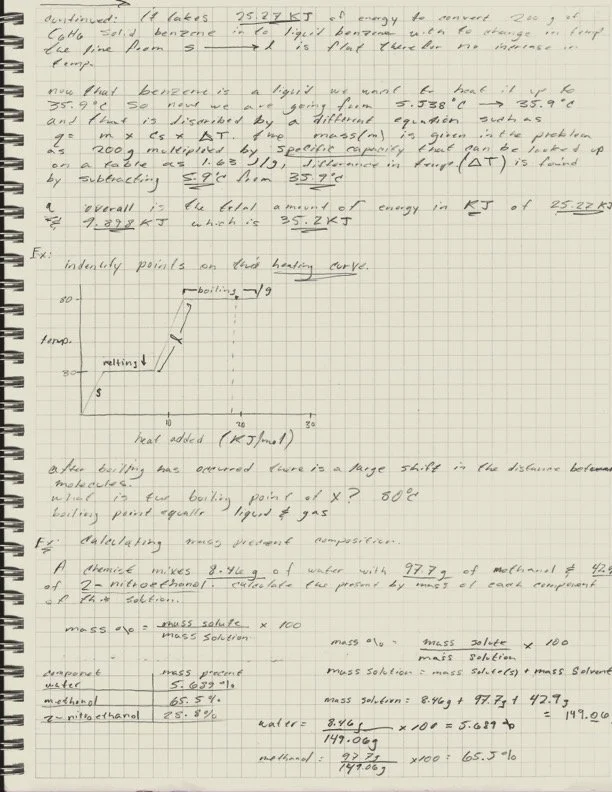 continued: It takes 25.27 KJ of energy to convert 200 g of
C6H6 solid benzene in to liquid benzene with to change in temp
the line from s → l is flat therefor no increase in
temp.
now that benzene is a liquid we want to heat it up to
35.9°c so now we are going from 5.538°c → 35.9°c
and that is discribed by a different equation such as
q = m × Cs × ΔT. the mass(m) is given in the problem
as 200g multiplied by specific capacity that can be looked up
on a table as 1.63 J/g, difference in temp(ΔT) is found
by subtracting 5.9°c from 35.9°c
q overall is the total amount of energy in KJ of 25.27 KJ
& 9.898 KJ which is 35.2KJ
Ex:
indentify points on this heating curve.
boiling g
80
temp. l
melting ↓
30
s
10 20 30
heat added (KJ/mol)
after boiling has occurred there is a large shift in the distance between
molecules.
what is the boiling point of X? 80°c
boiling point equalls liquid & gas
Ex: calculating mass precent composition.
A chemist mixes 8.46 g of water with 97.7 g of methanol & 42.9
of 2-nitroethanol. calculate the precent by mass of each component
of this solution.
mass % = mass solute / mass solution × 100
mass % = mass solute / mass solution × 100
mass solution = mass solute(s) + mass solvent
componet mass precent
water 5.689%
methonol 65.5%
2-nitroethanol 28.8%
mass solution = 8.46g + 97.7g + 42.9g
= 149.06
water = 8.46g / 149.06g × 100 = 5.689 %
methanol = 97.7g / 149.06g × 100 = 65.5 %